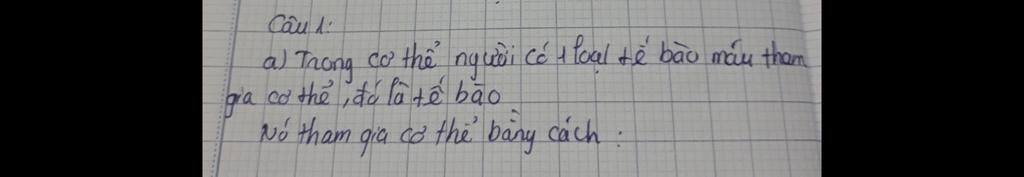 Câu 1:
a) Trong cơ thể người có 1 loại tế bào máu tham
gia cơ thể, đó là tế bāo
Nó tham gia cơ thể bằng cách :